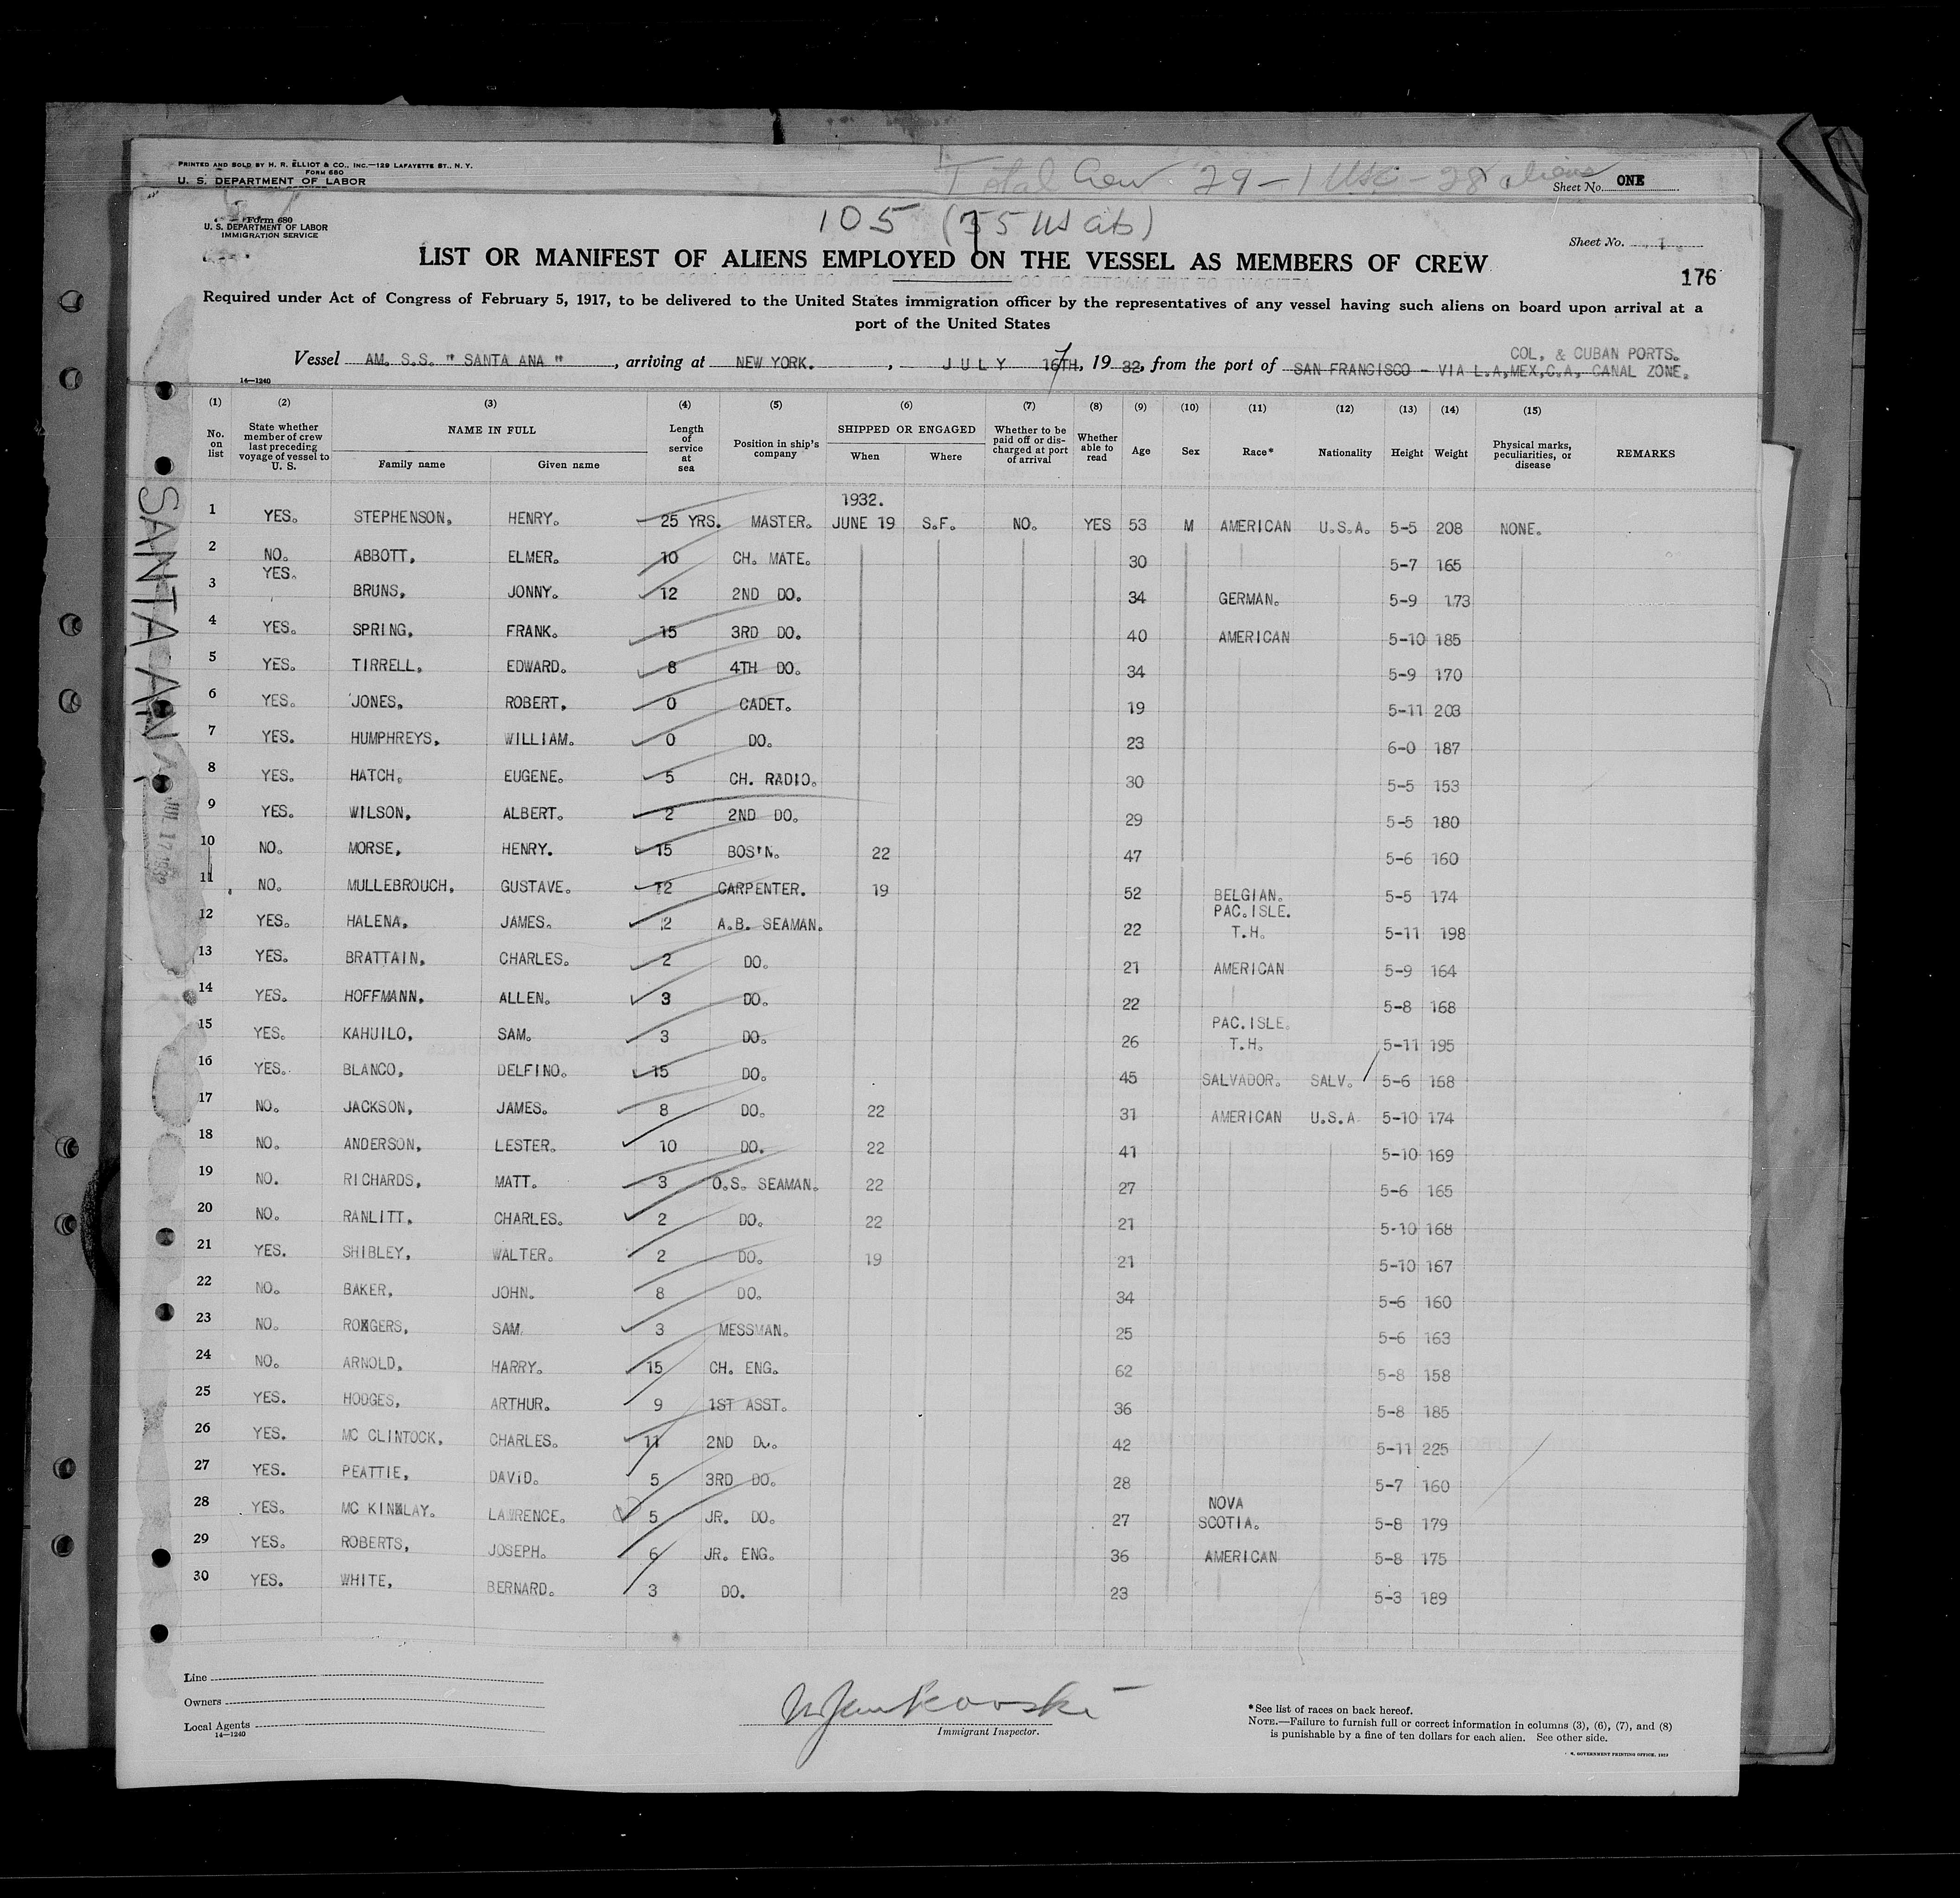 PRINTED AND SOLD BY H. R. ELLIOT & CO., INC.—129 LAFAYETTE ST., N. Y.
FORM 680
U. S. DEPARTMENT OF LABOR
Total Crew 29 – 1 USC – 28 aliens
Sheet No. ONE
Form 680
U. S. DEPARTMENT OF LABOR
IMMIGRATION SERVICE
105 (75 US cits)
Sheet No. 1
LIST OR MANIFEST OF ALIENS EMPLOYED ON THE VESSEL AS MEMBERS OF CREW
176
Required under Act of Congress of February 5, 1917, to be delivered to the United States immigration officer by the representatives of any vessel having such aliens on board upon arrival at a
port of the United States
COL, & CUBAN PORTS.
Vessel AM. S.S. " SANTA ANA ", arriving at NEW YORK. , JULY 17TH, 1932, from the port of SAN FRANCISCO - VIA L.A,MEX,C.A, CANAL ZONE.
14—1240
(1) (2) (3) (4) (5) (6) (7) (8) (9) (10) (11) (12) (13) (14) (15)
No. on list
State whether member of crew last preceding voyage of vessel to U. S.
NAME IN FULL
Family name Given name
Length of service at sea
Position in ship's company
SHIPPED OR ENGAGED
When Where
Whether to be paid off or discharged at port of arrival
Whether able to read
Age Sex Race* Nationality Height Weight
Physical marks, peculiarities, or disease
REMARKS
1932.
1 YES. STEPHENSON, HENRY. 25 YRS. MASTER. JUNE 19 S.F. NO. YES 53 M AMERICAN U.S.A. 5-5 208 NONE.
2 NO. ABBOTT, ELMER. 10 CH. MATE. 30 5-7 165
3 YES. BRUNS, JONNY. 12 2ND DO. 34 GERMAN. 5-9 173
4 YES. SPRING, FRANK. 15 3RD DO. 40 AMERICAN 5-10 185
5 YES. TIRRELL, EDWARD. 8 4TH DO. 34 5-9 170
6 YES. JONES, ROBERT, 0 CADET. 19 5-11 203
7 YES. HUMPHREYS, WILLIAM. 0 DO. 23 6-0 187
8 YES. HATCH, EUGENE. 5 CH. RADIO. 30 5-5 153
9 YES. WILSON, ALBERT. 2 2ND DO. 29 5-5 180
10 NO. MORSE, HENRY. 15 BOS'N. 22 47 5-6 160
11 NO. MULLEBROUCH, GUSTAVE. 12 CARPENTER. 19 52 BELGIAN. 5-5 174
12 YES. HALENA, JAMES. 2 A.B. SEAMAN. 22 PAC.ISLE. T.H. 5-11 198
13 YES. BRATTAIN, CHARLES. 2 DO. 21 AMERICAN 5-9 164
14 YES. HOFFMANN, ALLEN. 3 DO. 22 5-8 168
15 YES. KAHUILO, SAM. 3 DO. 26 PAC.ISLE. T.H. 5-11 195
16 YES. BLANCO, DELFINO. 15 DO. 45 SALVADOR. SALV. 5-6 168
17 NO. JACKSON, JAMES. 8 DO. 22 31 AMERICAN U.S.A. 5-10 174
18 NO. ANDERSON, LESTER. 10 DO. 22 41 5-10 169
19 NO. RICHARDS, MATT. 3 O.S. SEAMAN. 22 27 5-6 165
20 NO. RANLITT, CHARLES. 2 DO. 22 21 5-10 168
21 YES. SHIBLEY, WALTER. 2 DO. 19 21 5-10 167
22 NO. BAKER, JOHN. 8 DO. 34 5-6 160
23 NO. ROGERS, SAM. 3 MESSMAN. 25 5-6 163
24 NO. ARNOLD, HARRY. 15 CH. ENG. 62 5-8 158
25 YES. HODGES, ARTHUR. 9 1ST ASST. 36 5-8 185
26 YES. MC CLINTOCK, CHARLES. 11 2ND DO. 42 5-11 225
27 YES. PEATTIE, DAVID. 5 3RD DO. 28 5-7 160
28 YES. MC KINLAY. LAWRENCE. 5 JR. DO. 27 NOVA SCOTIA. 5-8 179
29 YES. ROBERTS, JOSEPH. 6 JR. ENG. 36 AMERICAN 5-8 175
30 YES. WHITE, BERNARD. 3 DO. 23 5-3 189
SANTA ANA
JUL 17 1932
Line
Owners
Local Agents
14—1240
Immigrant Inspector.
*See list of races on back hereof.
NOTE.—Failure to furnish full or correct information in columns (3), (6), (7), and (8)
is punishable by a fine of ten dollars for each alien. See other side.
GOVERNMENT PRINTING OFFICE.